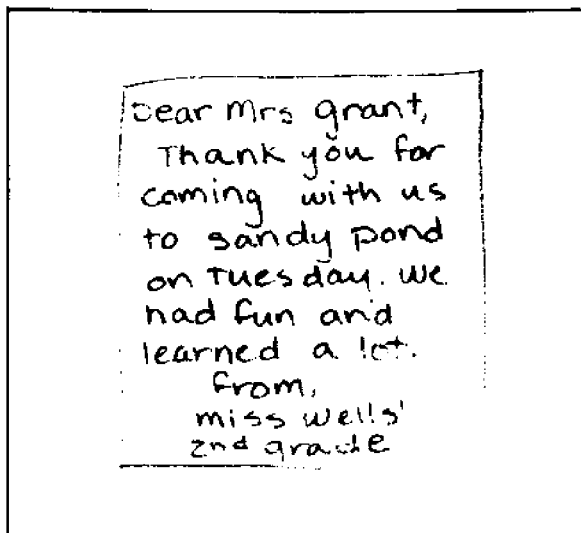 Dear Mrs grant,
Thank you for
coming with us
to sandy pond
on Tuesday. we
had fun and
learned a lot.
from,
miss wells'
2nd grade